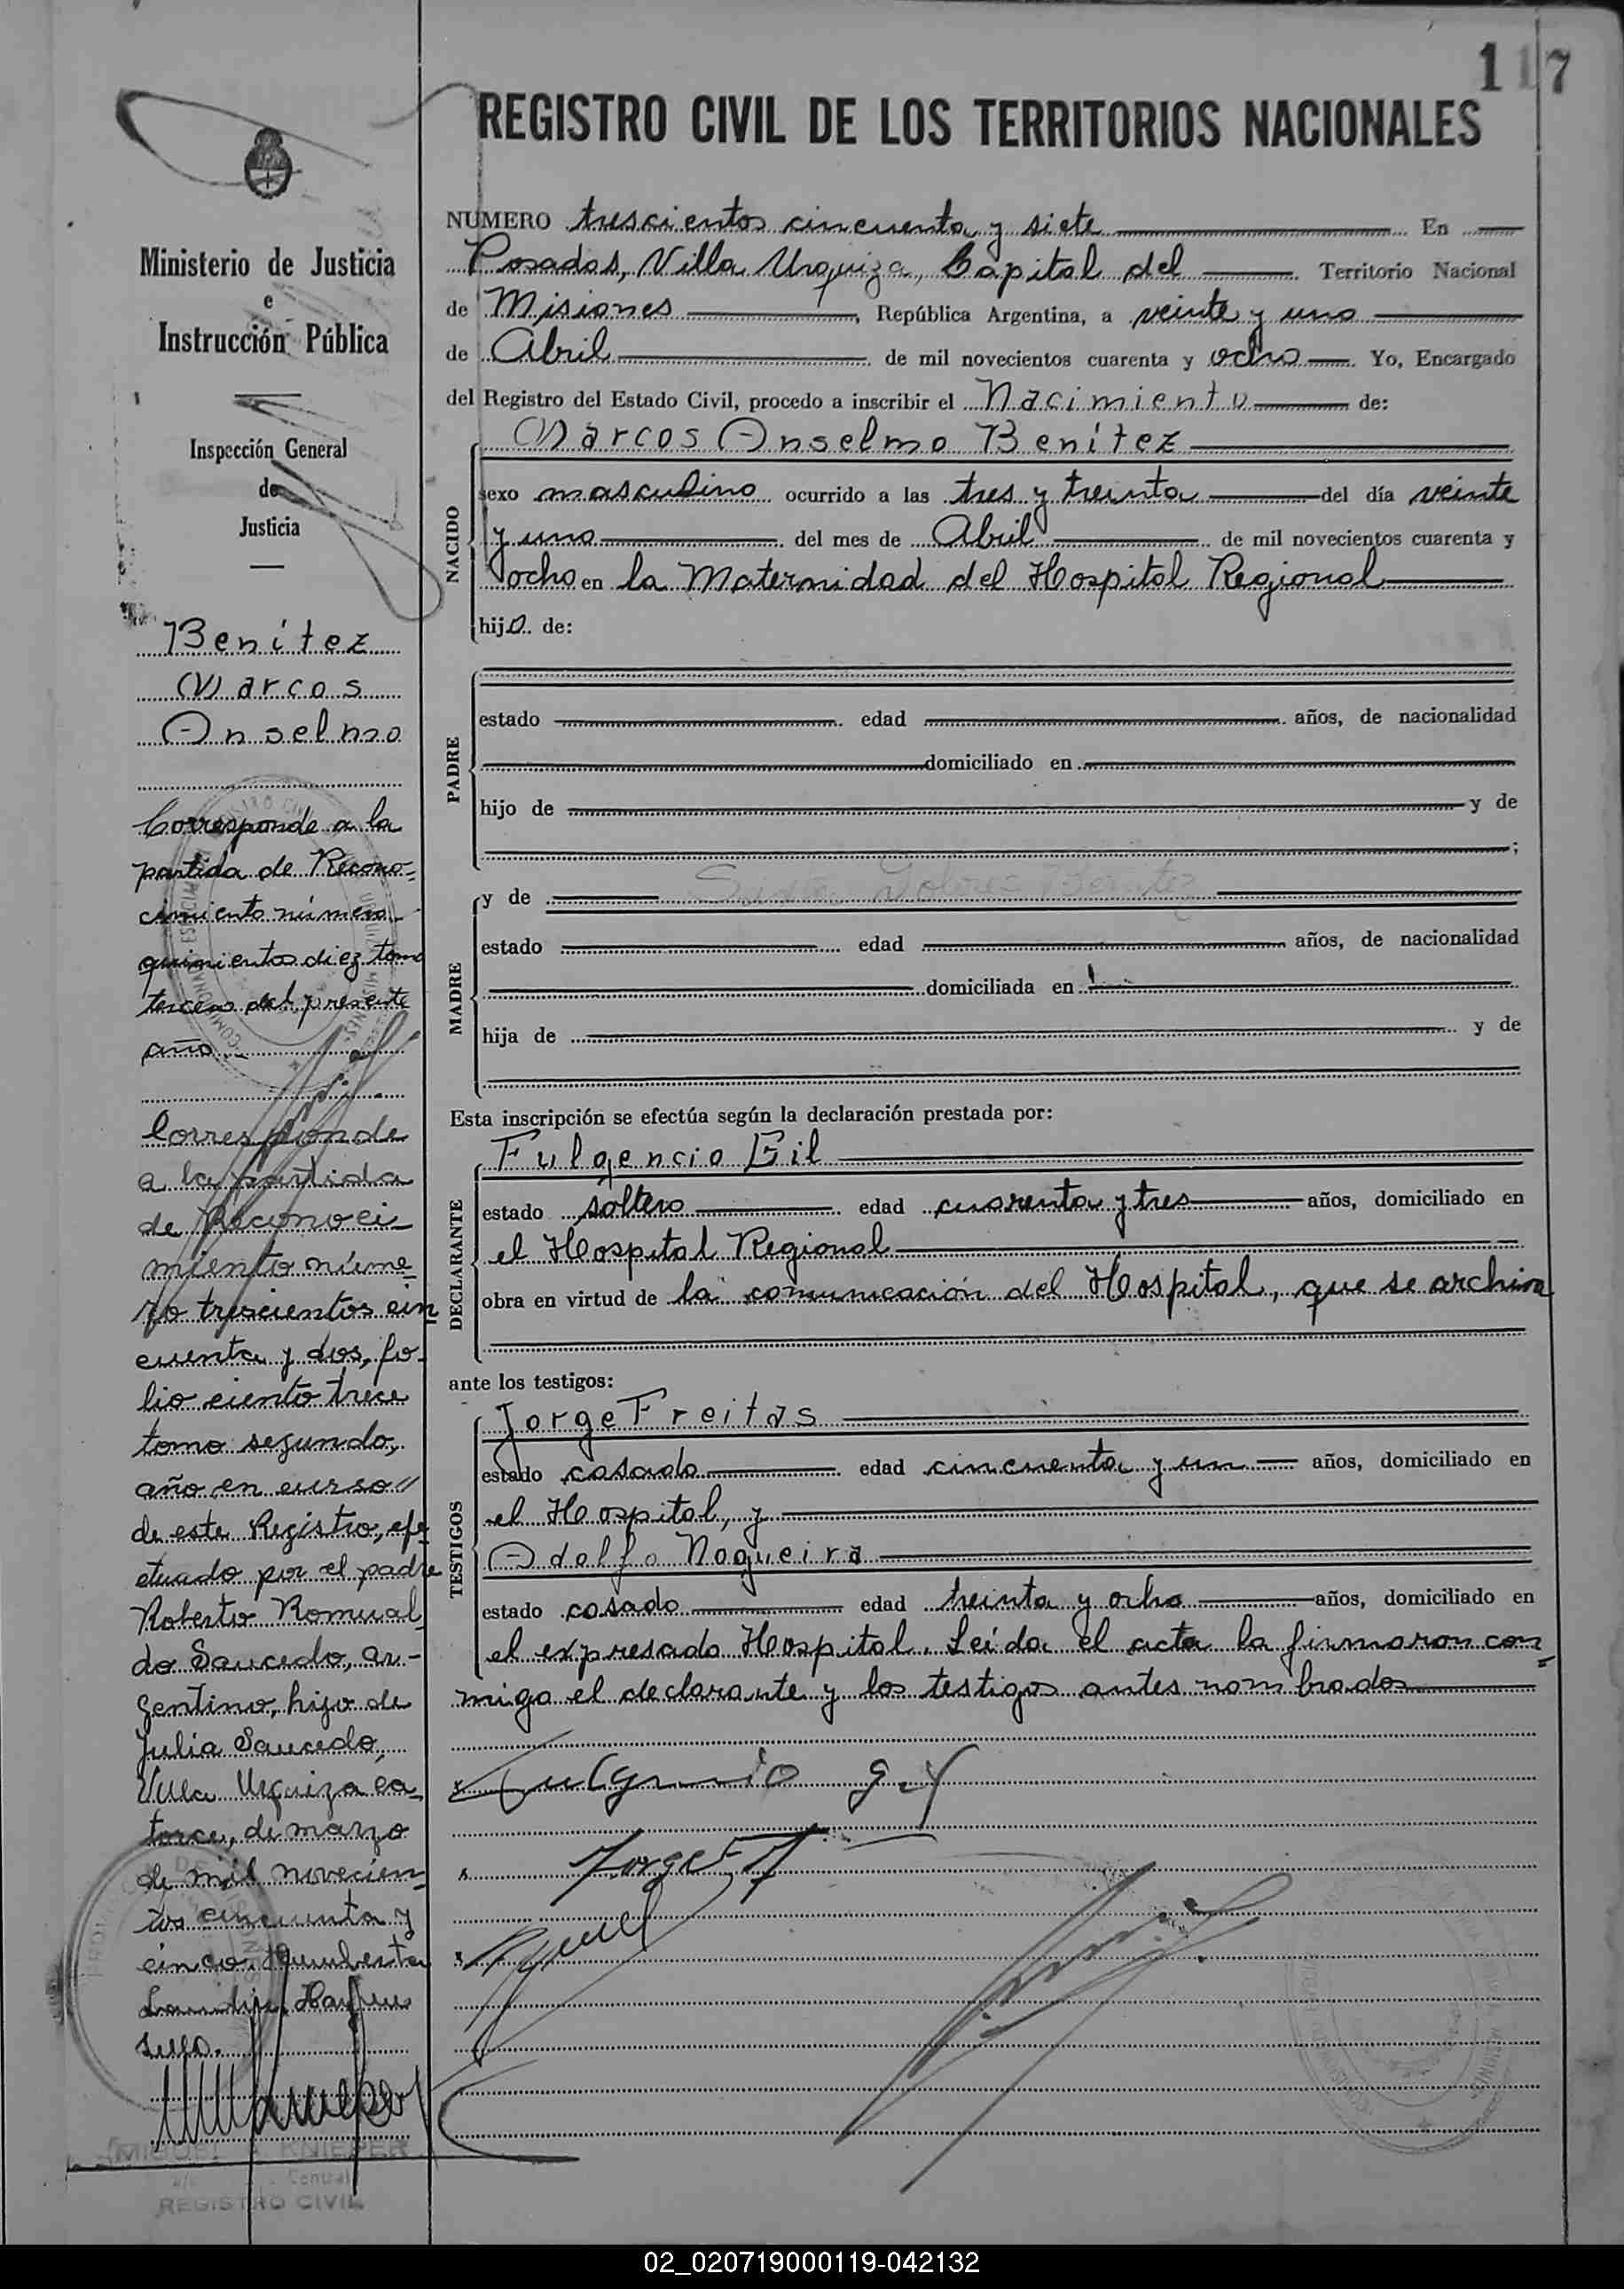 117
REGISTRO CIVIL DE LOS TERRITORIOS NACIONALES
Ministerio de Justicia
e
Instrucción Pública
Inspección General
de
Justicia
Benítez
Marcos
Anselmo
Corresponde a la
partida de Recono=
cimiento número
quinientos diez tomo
tercero del presente
año.-
Corresponde
a la partida
de Reconoci-
miento núme-
ro trescientos cin
cuenta y dos, fo-
lio ciento trece
tomo segundo,
año en curso
de este Registro, efe
ctuado por el padre
Roberto Romual
do Saucedo, ar-
gentino, hijo de
Julia Saucedo,
Villa Urquiza ca-
torce, de marzo
de mil novecien-
tos cincuenta y
cinco.
KNIEPER
Central
REGISTRO CIVIL
NUMERO trescientos cincuenta y siete En
Posadas, Villa Urquiza, Capital del Territorio Nacional
de Misiones, República Argentina, a veinte y uno
de Abril de mil novecientos cuarenta y ocho. Yo, Encargado
del Registro del Estado Civil, procedo a inscribir el Nacimiento de:
NACIDO
Marcos Anselmo Benítez
sexo masculino ocurrido a las tres y treinta del día veinte
y uno del mes de Abril de mil novecientos cuarenta y
ocho en la Maternidad del Hospital Regional
hijo de:
PADRE
estado edad años, de nacionalidad
domiciliado en
hijo de y de
;
MADRE
y de Benítez
estado edad años, de nacionalidad
domiciliada en
hija de y de
Esta inscripción se efectúa según la declaración prestada por:
DECLARANTE
Fulgencio Gil
estado soltero edad cuarenta y tres años, domiciliado en
el Hospital Regional
obra en virtud de la comunicación del Hospital, que se archiva
ante los testigos:
TESTIGOS
Jorge Freitas
estado casado edad cincuenta y un años, domiciliado en
el Hospital, y
Adolfo Nogueira
estado casado edad treinta y ocho años, domiciliado en
el expresado Hospital. Leída el acta la firmaron con=
migo el declarante y los testigos antes nombrados
Jorge
02_020719000119-042132